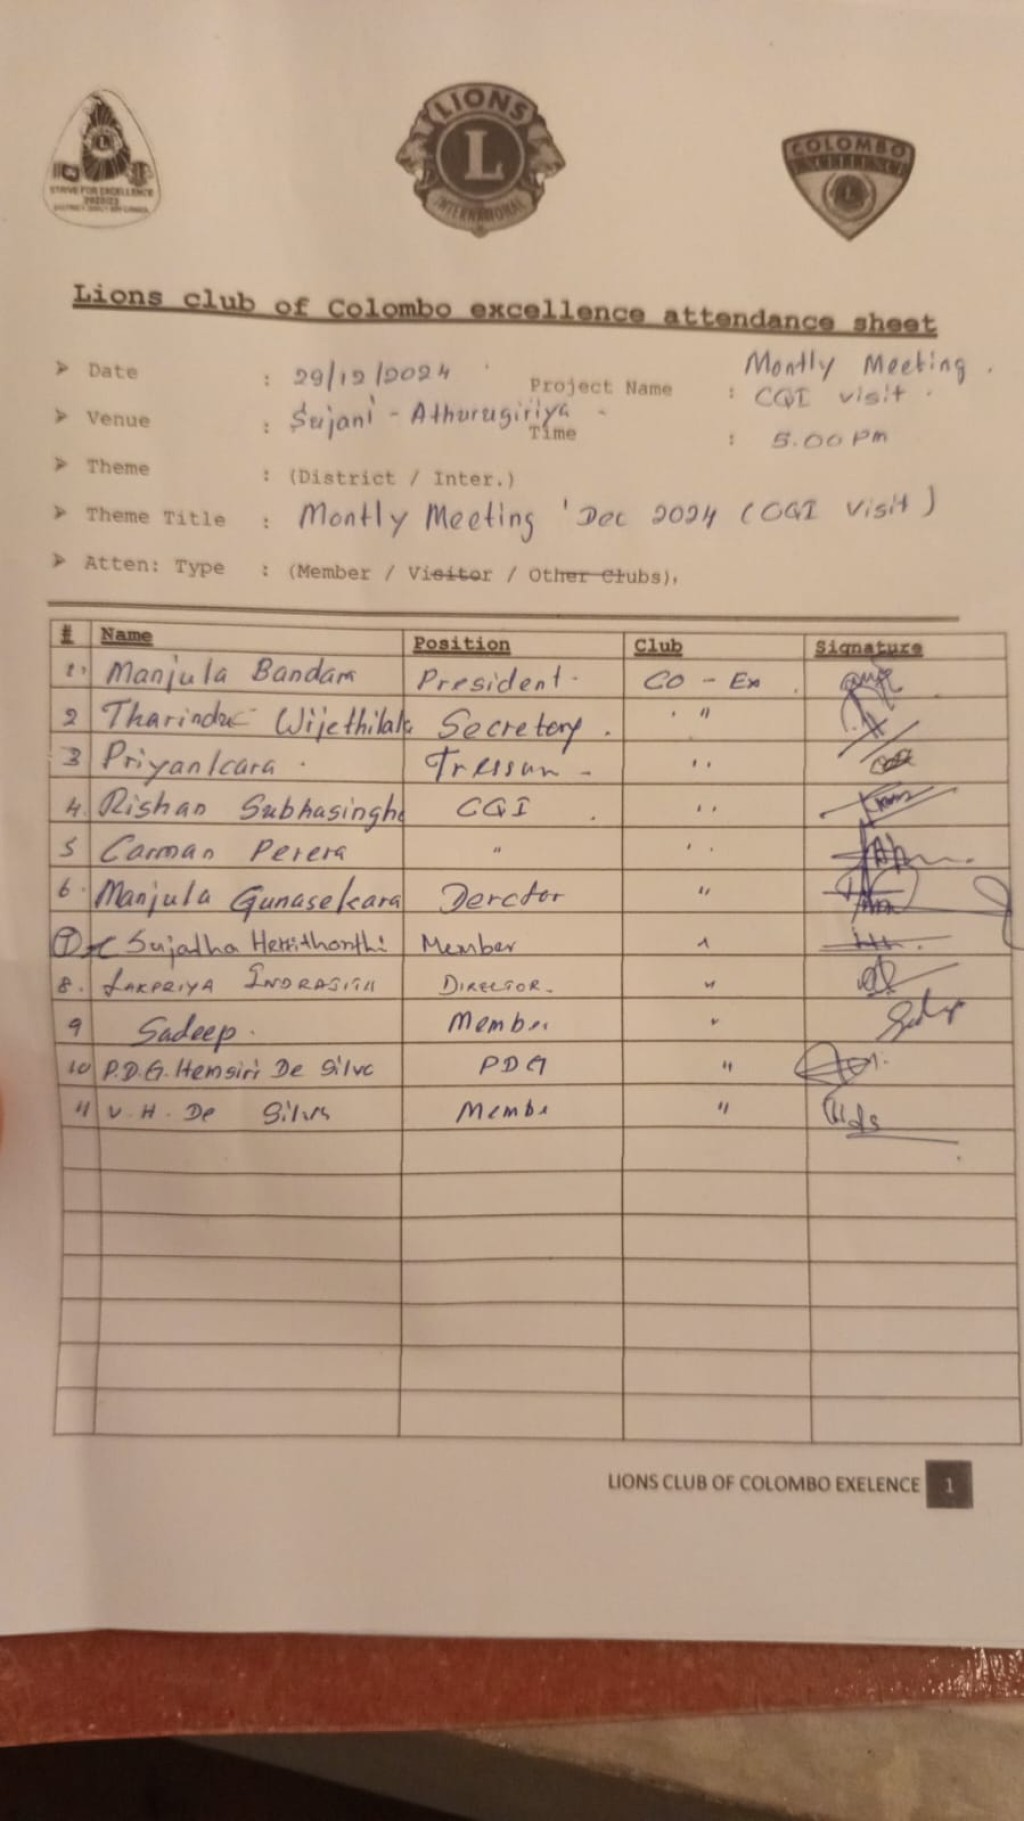 LIONS
L
INTERNATIONAL
COLOMBO
STRIVE FOR EXCELLENCE
Lions club of Colombo excellence attendance sheet
➢ Date : 29/12/2024 Project Name : Montly Meeting. CQI visit.
➢ Venue : Sujani - Athurugiriya - Time : 5.00 pm
➢ Theme : (District / Inter.)
➢ Theme Title : Montly Meeting 'Dec 2024 (CQI visit)
➢ Atten: Type : (Member / Visitor / Other Clubs),
# Name Position Club Signature
1. Manjula Bandara President. CO - Ex
2 Tharindu Wijethilak Secretory. "
3 Priyankara. "
4. Rishan Subhasingha CQI "
5 Carman Perera " "
6. Manjula Gunasekara Derctor "
7 Sujatha Member "
8. LAKPRIYA DIRECTOR. "
9 Sadeep. Member "
10 P.D.G. Hemsiri De Silva PDG "
11 V.H. De Silva Membe "
LIONS CLUB OF COLOMBO EXELENCE 1